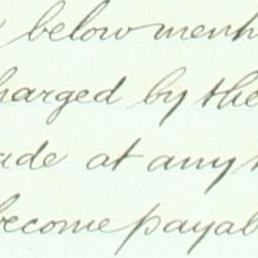 below ment
harged by the
ade at any t
become payab